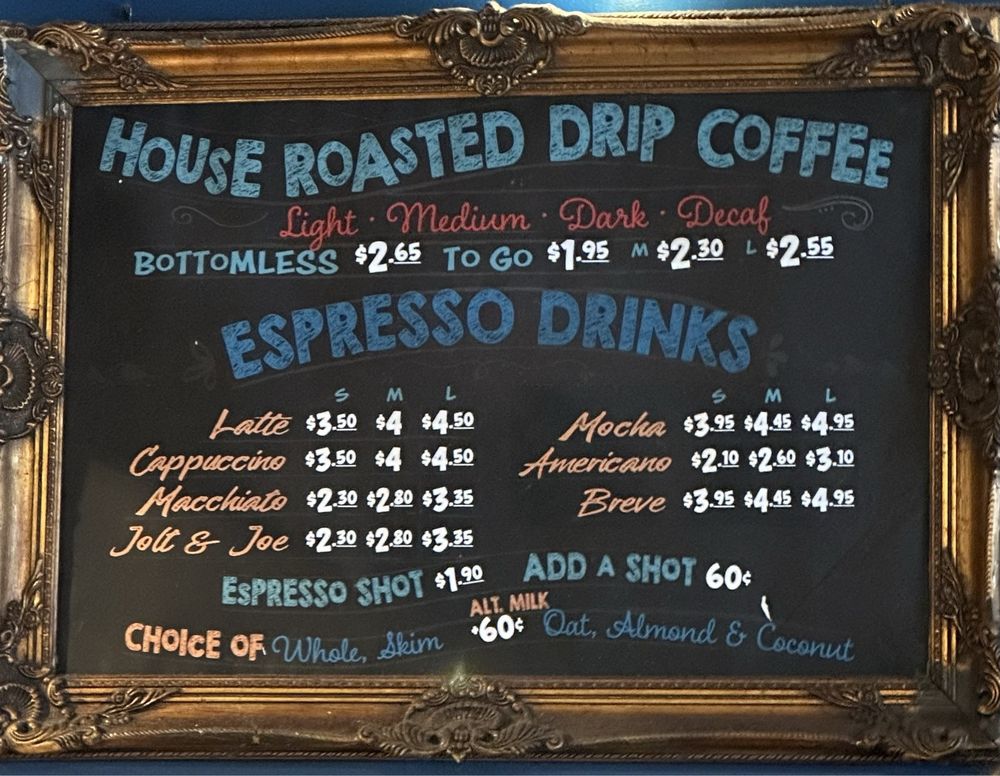 HOUSE ROASTED DRIP COFFEE
Light · Medium · Dark · Decaf
BOTTOMLESS $2.65 TO GO $1.95 M $2.30 L $2.55
ESPRESSO DRINKS
S M L
Latte $3.50 $4 $4.50
Cappuccino $3.50 $4 $4.50
Macchiato $2.30 $2.80 $3.35
Jolt & Joe $2.30 $2.80 $3.35
S M L
Mocha $3.95 $4.45 $4.95
Americano $2.10 $2.60 $3.10
Breve $3.95 $4.45 $4.95
ESPRESSO SHOT $1.90 ADD A SHOT 60¢
CHOICE OF Whole, Skim
ALT. MILK
+60¢ Oat, Almond & Coconut